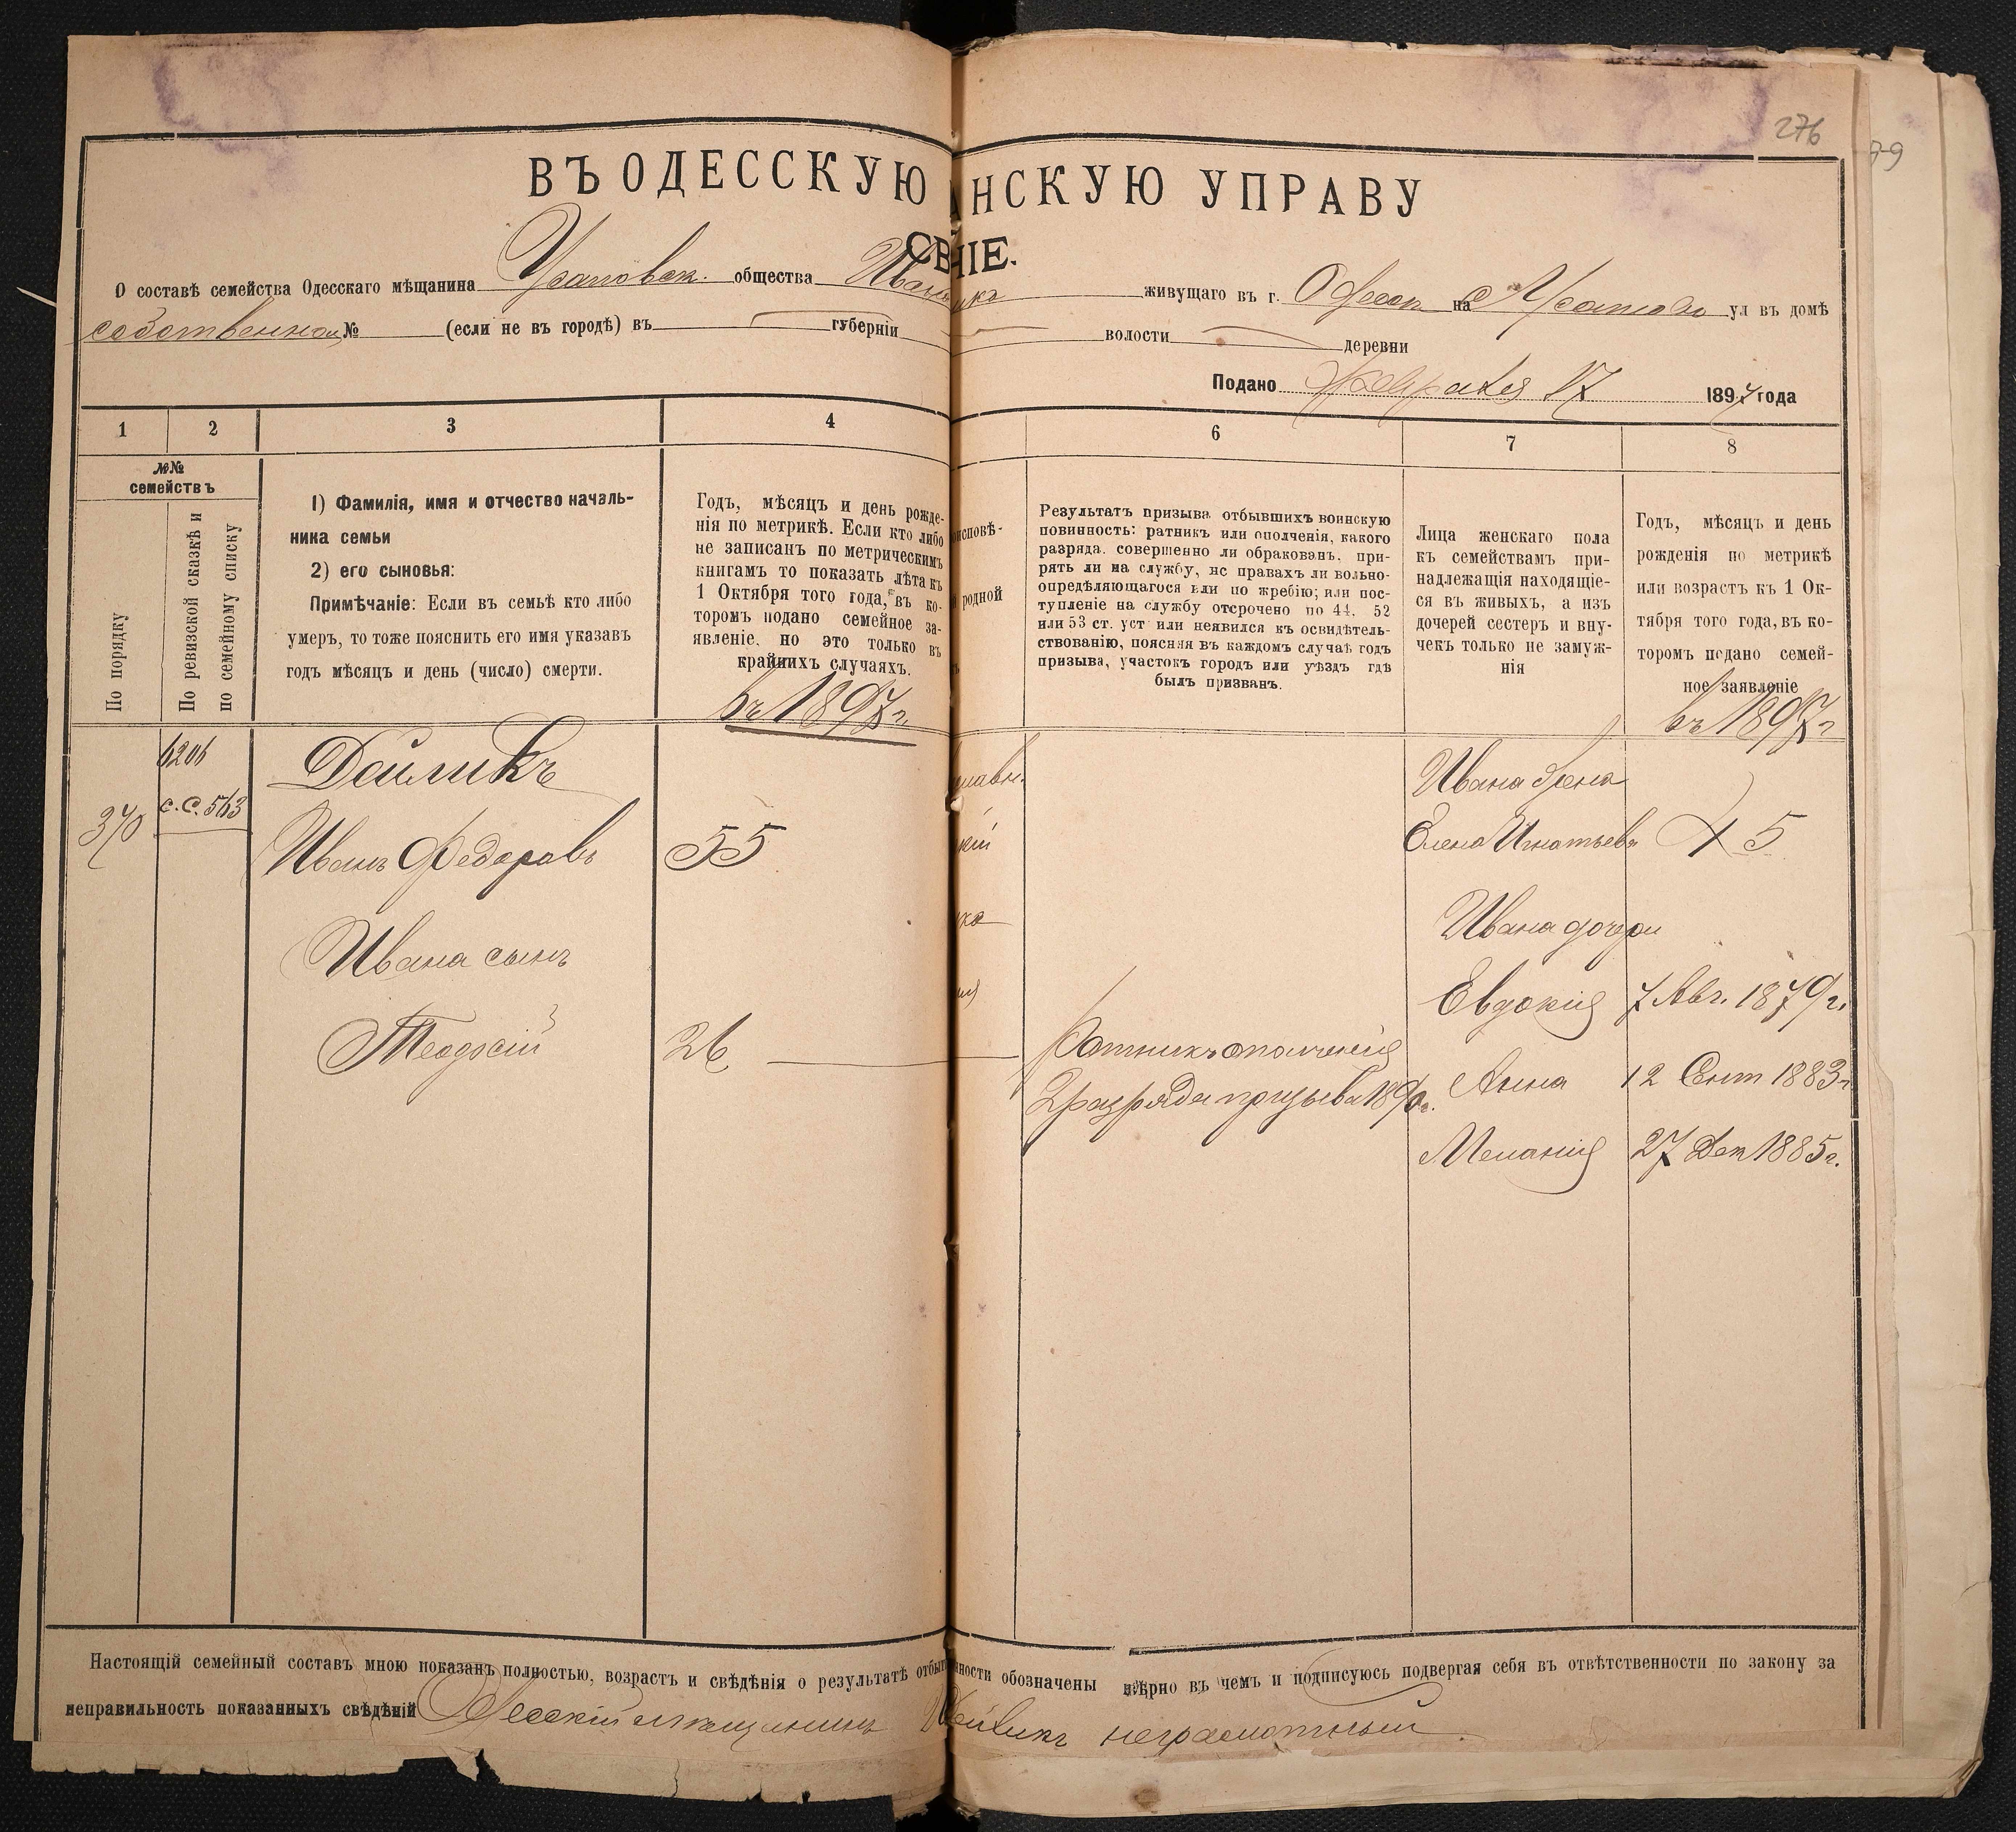 276
79
ВЪ ОДЕССКУЮ АНСКУЮ УПРАВУ
СВ НІЕ.
О составѣ семейства Одесскаго мѣщанина Усатовск. общества Иван живущаго въ г. Одессѣ на с Усатово ул въ домѣ
собственном № (если не въ городѣ) въ губерніи волости деревни
Подано Февраля 17 1897 года
1 2 3 4 6 7 8
№№ семействъ
По порядку
По ревизской сказкѣ и
по семейному списку
1) Фамилія, имя и отчество началь-
ника семьи
2) его сыновья:
Примѣчаніе: Если въ семьѣ кто либо
умеръ, то тоже пояснить его имя указавъ
годъ мѣсяцъ и день (число) смерти.
Годъ, мѣсяцъ и день рожде-
нія по метрикѣ. Если кто либо
не записанъ по метрическимъ
книгамъ то показать лѣта къ
1 Октября того года, въ ко-
торомъ подано семейное за-
явленіе, но это только въ
крайнихъ случаяхъ.
въ 1897 г.
исповѣ-
родной
Результатъ призыва отбывшихъ воинскую
повинность: ратникъ или ополченія, какого
разряда, совершенно ли обракованъ, при-
рять ли на службу, нс правахъ ли вольно-
опредѣляющагося или по жребію; или пос-
тупленіе на службу отсрочено по 44. 52
или 53 ст. уст или неявился къ освидѣтель-
ствованію, поясняя въ каждомъ случаѣ годъ
призыва, участокъ городъ или уѣздъ гдѣ
былъ призванъ.
Лица женскаго пола
къ семействамъ при-
надлежащія находящіе-
ся въ живыхъ, а изъ
дочерей сестеръ и вну-
чекъ только не замуж-
нія
Годъ, мѣсяцъ и день
рожденія по метрикѣ
или возрастъ къ 1 Ок-
тября того года, въ ко-
торомъ подано семей-
ное заявленіе
въ 1897 г
370
6206
с.с. 563
Дейликъ
Иванъ Федоровъ 55
Ивана сынъ
Теодосій 26
славн.
кій
Ратникъ ополченія
2 разряда призыва 1890 г.
Ивана жена
Елена Игнатьева 45
Ивана дочери
Евдокія 7 Авг. 1879 г.
Анна 12 Сент 1883 г
Меланія 27 Дек 1885 г.
Настоящій семейный составъ мною показанъ полностью, возрастъ и свѣдѣнія о результатѣ отбы нности обозначены вѣрно въ чемъ и подписуюсь подвергая себя въ отвѣтственности по закону за
неправильность показанныхъ свѣдѣній Одесскій мѣщанинъ Дейликъ неграмотный